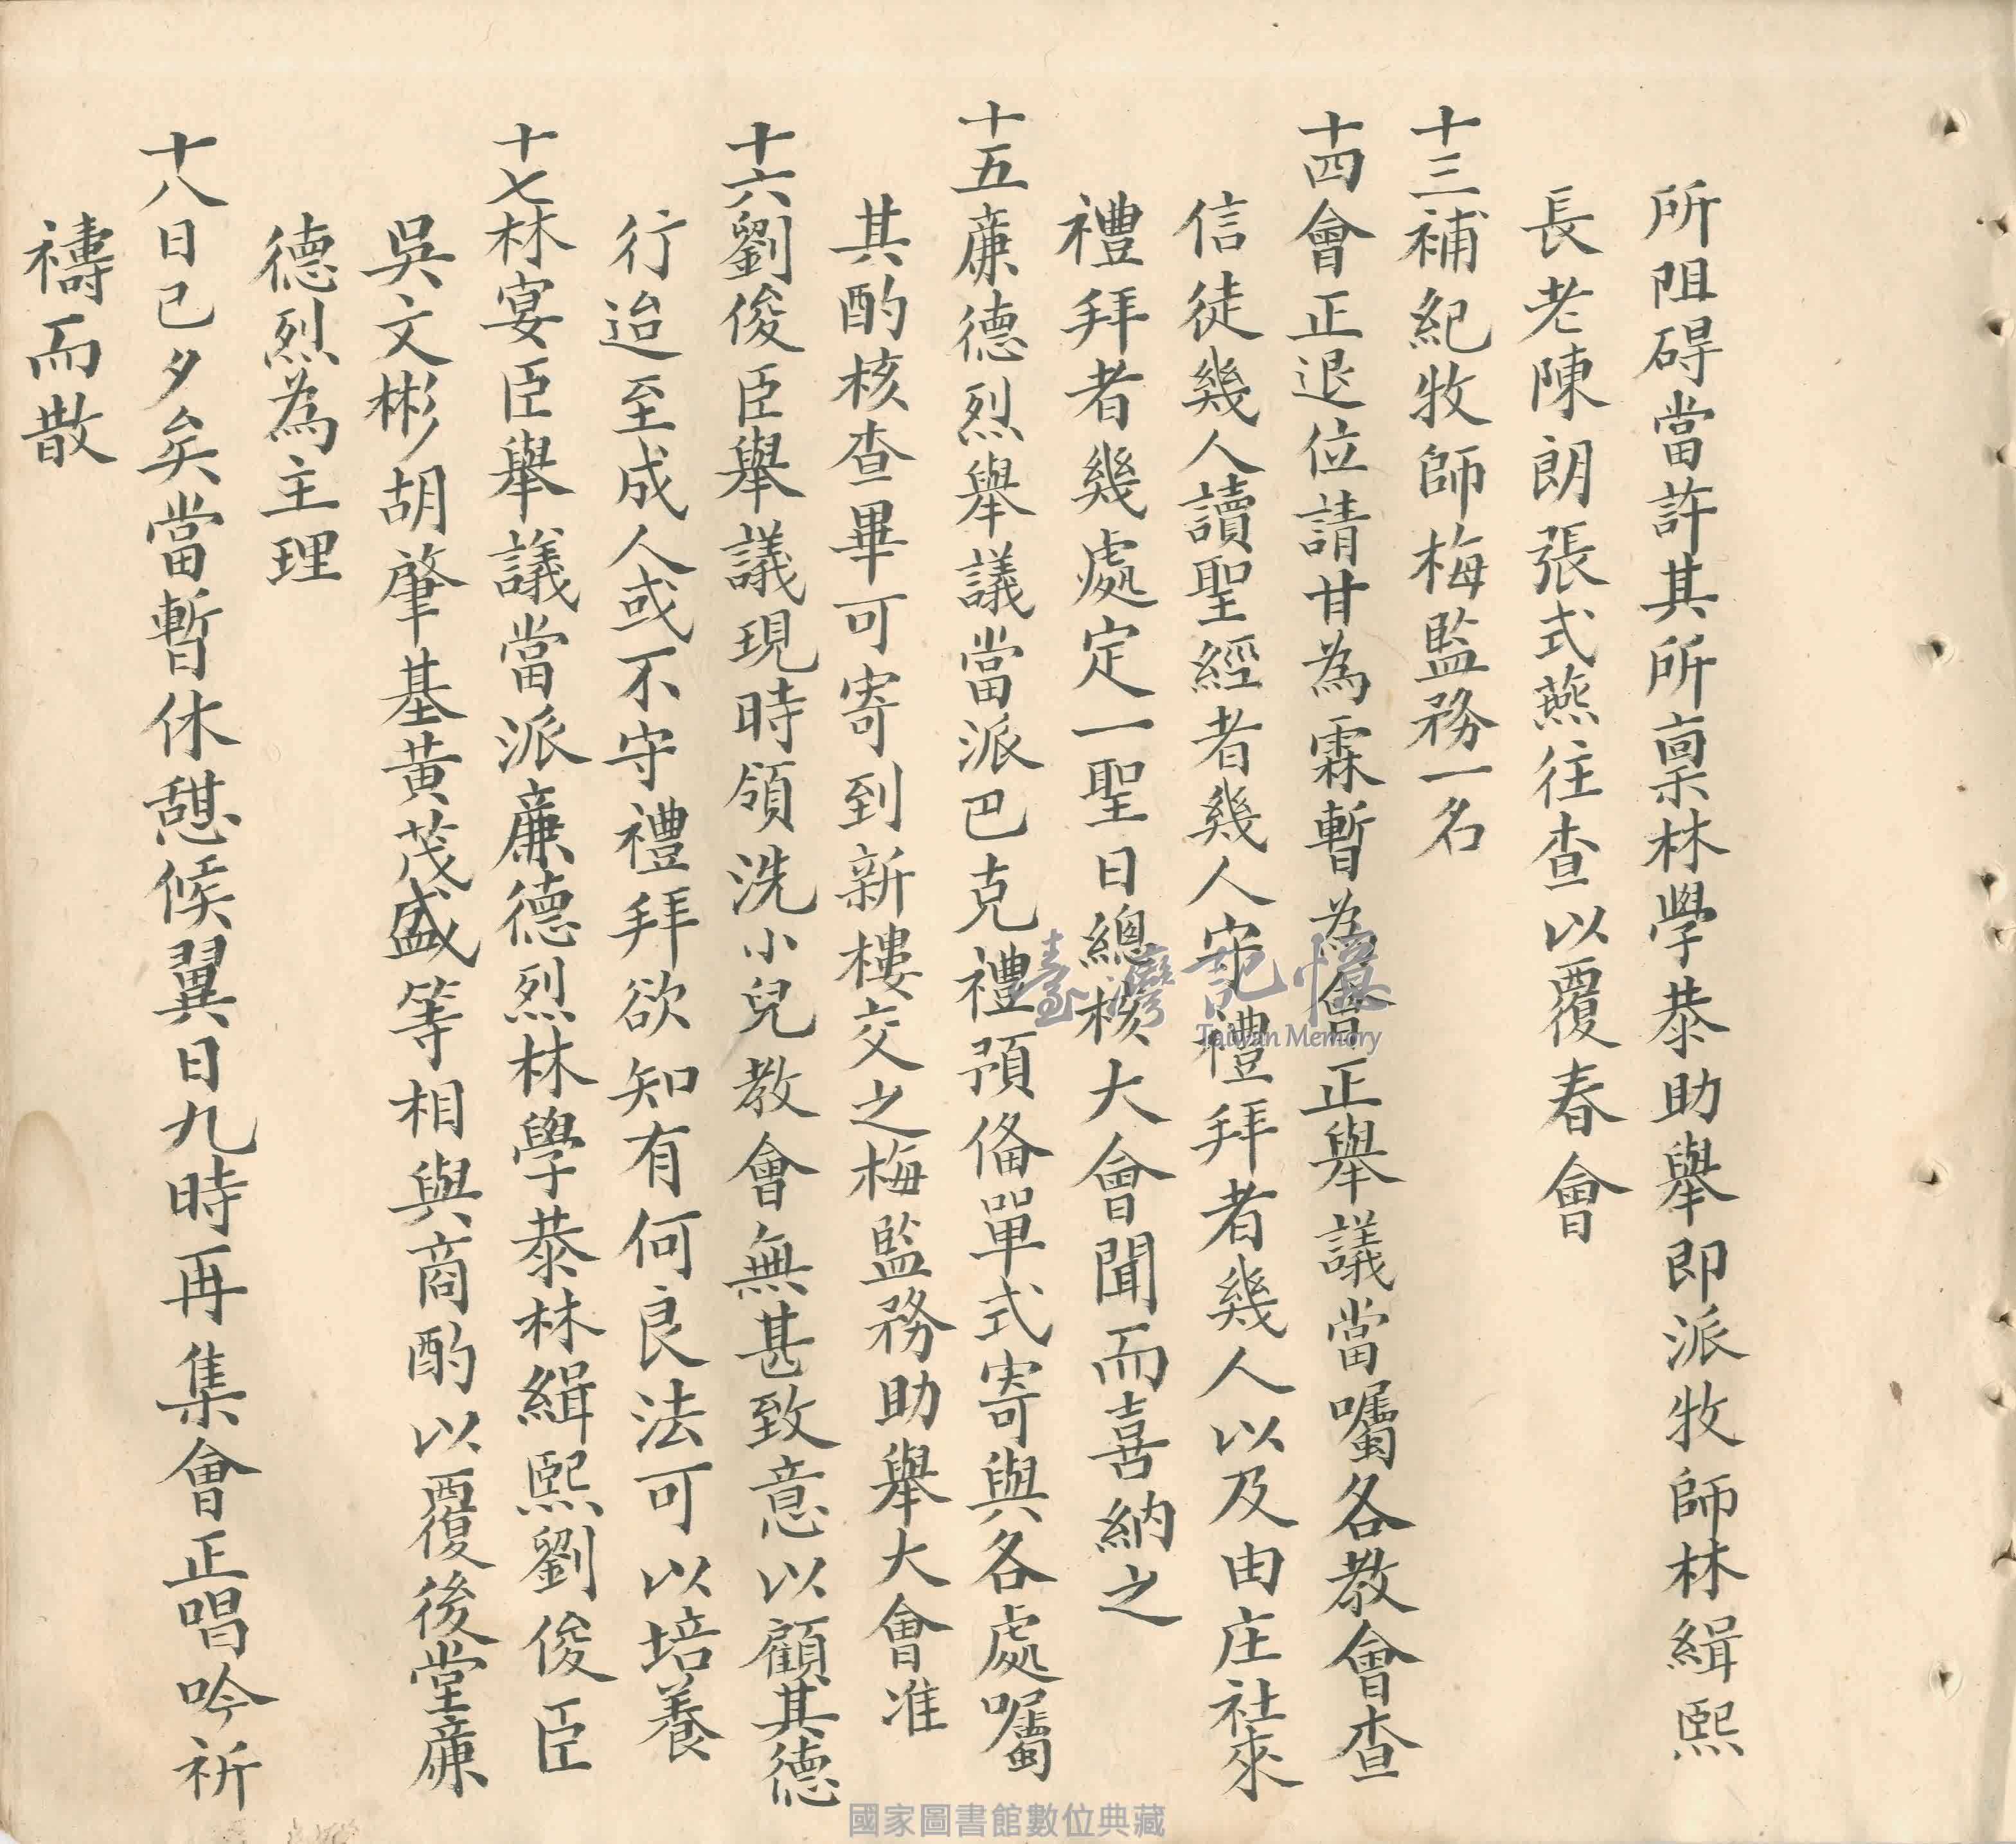 所阻碍當許其所稟林學恭助舉即派牧師林緝熙
長老陳朗張式燕往查以覆春會
十三補紀牧師梅監務一名
十四會正退位請甘為霖暫為會正舉議當囑各教會查
信徒幾人讀聖經者幾人守禮拜者幾人以及由庄社來
禮拜者幾處定一聖日總核大會聞而喜納之
十五廉德烈舉議當派巴克禮預俻單式寄與各處囑
其酌核查畢可寄到新樓交之梅監務助舉大會准
十六劉俊臣舉議現時領洗小兒教會無甚致意以顧其德
行迨至成人或不守禮拜欲知有何良法可以培養
十七林宴臣舉議當派廉德烈林學恭林緝熙劉俊臣
吳文彬胡肇基黄茂盛等相與商酌以覆後堂廉
德烈為主理
十八日已夕矣當暫休憇候翼日九時再集會正唱吟祈
禱而散
臺灣記憶
Taiwan Memory
國家圖書館數位典藏